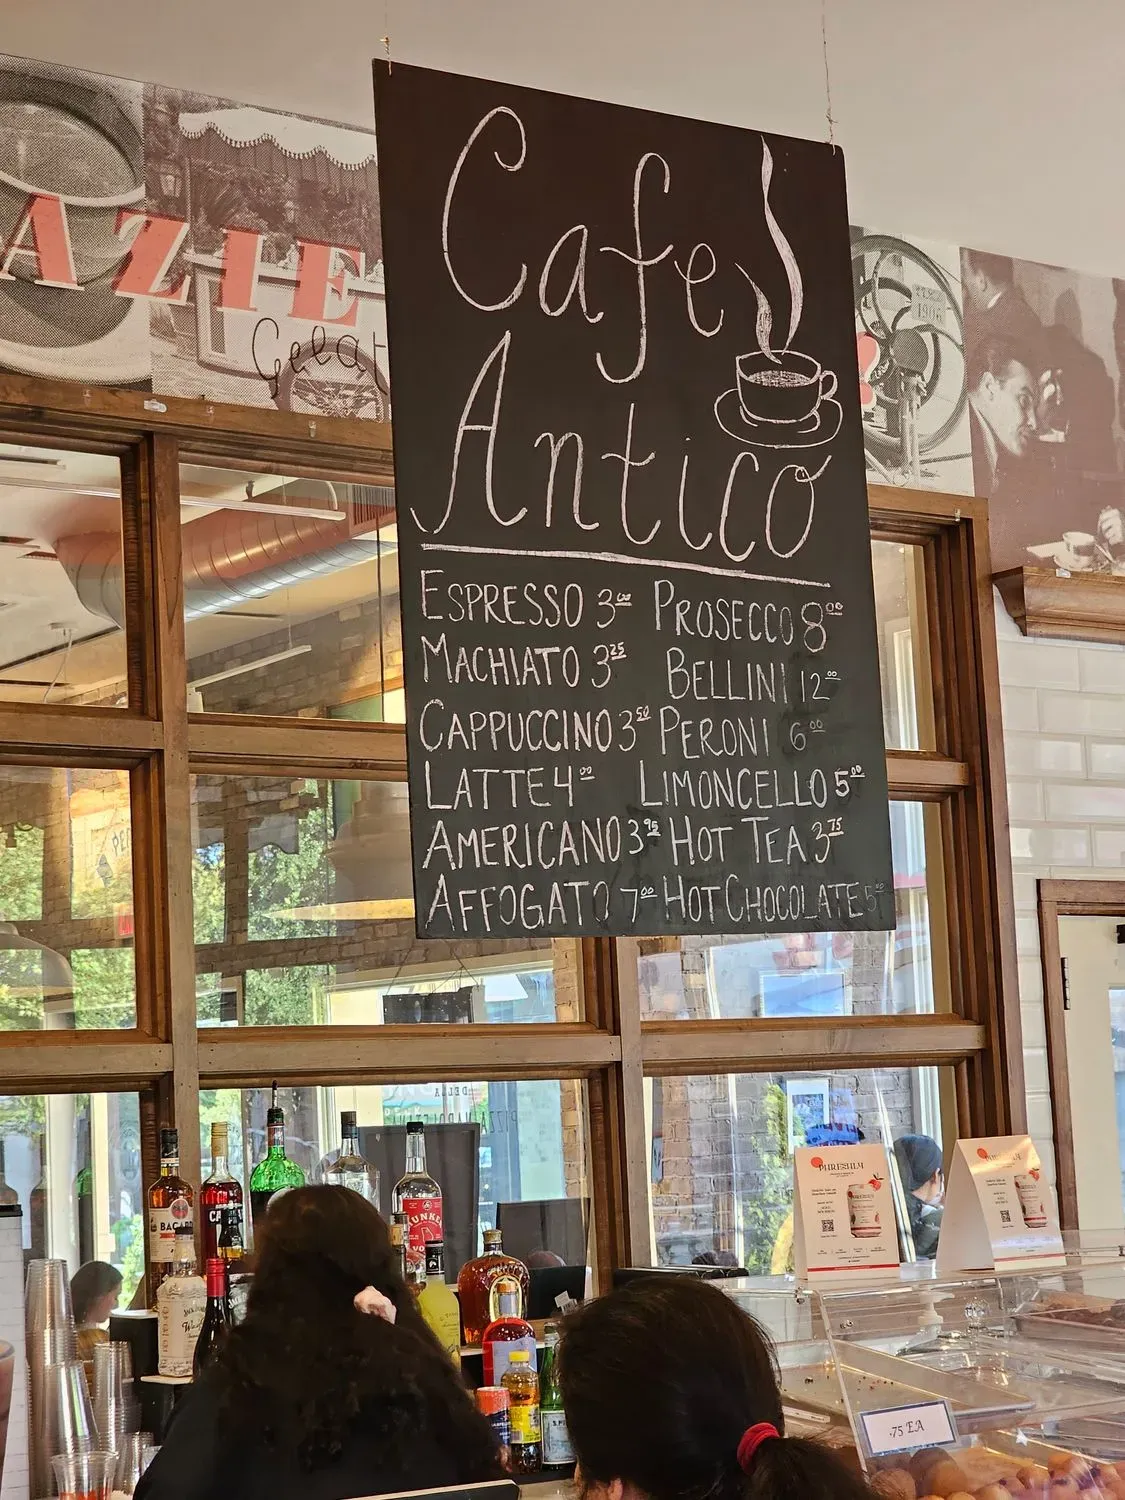 AZIE
Gelat
SINCE
1906
?
Cafe
Antico
ESPRESSO 3.00 PROSECCO 8.00
MACHIATO 3.25 BELLINI 12.00
CAPPUCCINO 3.50 PERONI 6.00
LATTE 4.00 LIMONCELLO 5.00
AMERICANO 3.95 HOT TEA 3.75
AFFOGATO 7.00 HOT CHOCOLATE 5.00
DELLA
BACARDI
PURESULM
.75 EA